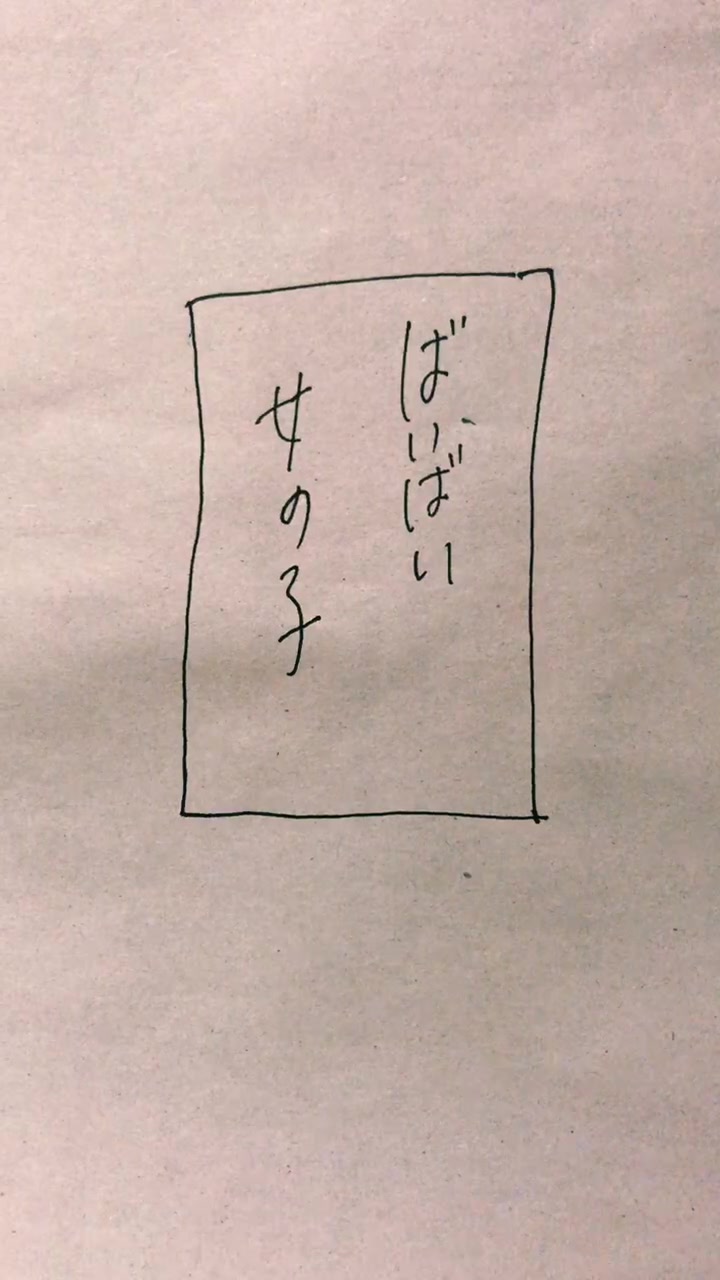 ばいばい
女の子